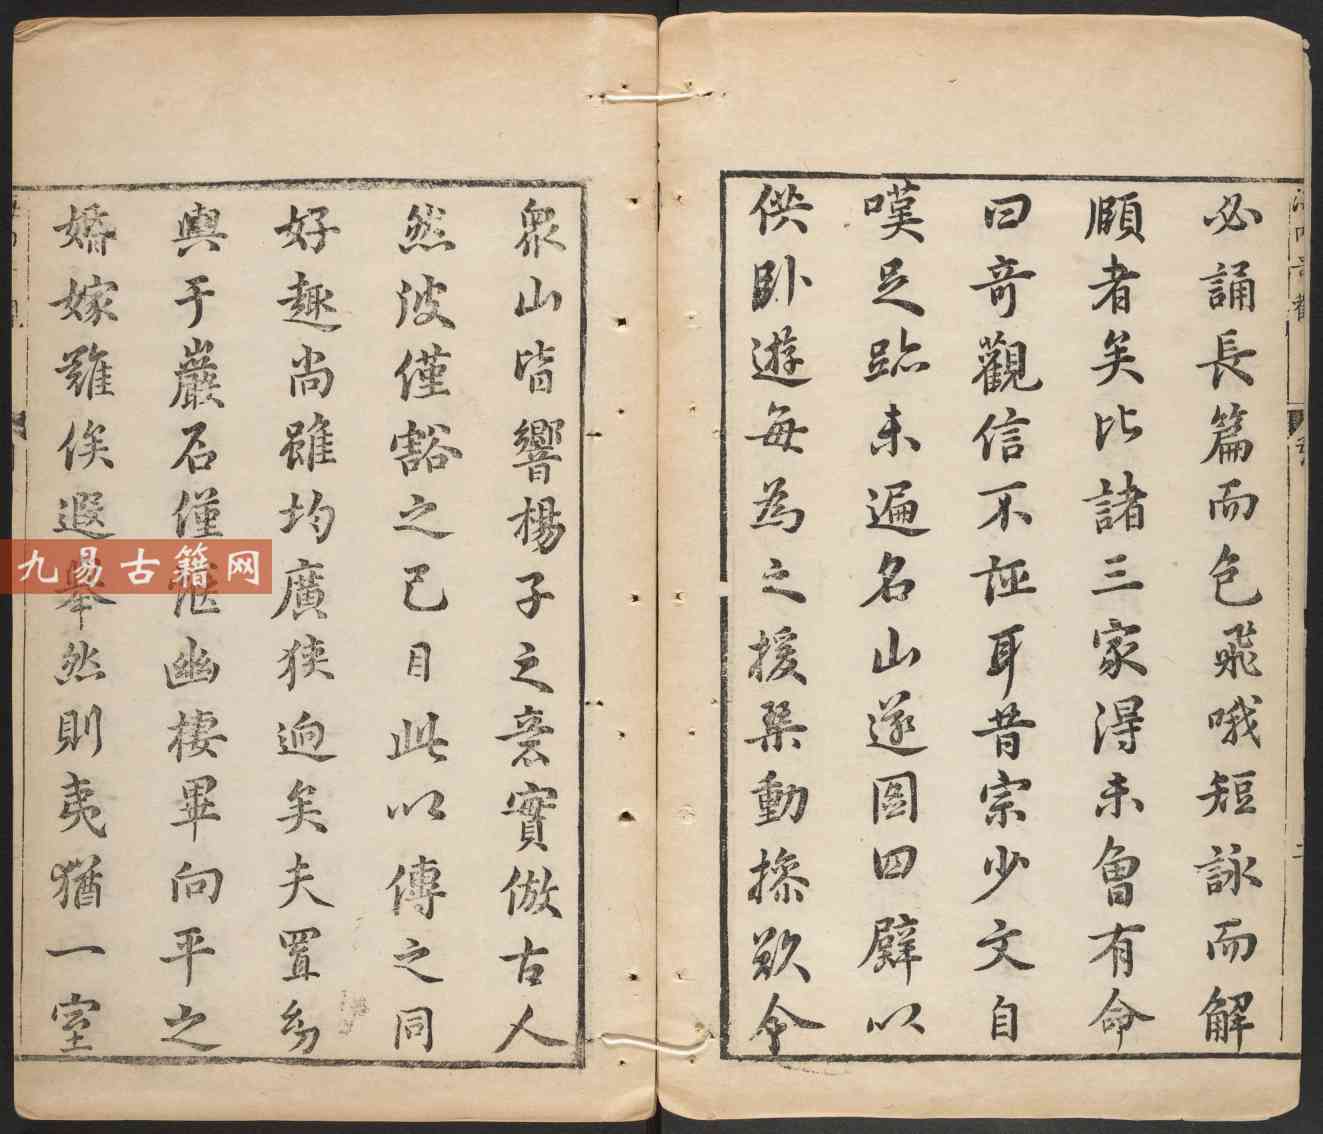 必誦長篇而色飛哦短詠而解
頤者矣比諸三家得未曾有命
曰奇觀信不誣耳昔宗少文自
嘆足跡未遍名山遂圖四壁以
供卧遊每為之援琴動操欲令
眾山皆響楊子之意實倣古人
然波僅豁之已目此以傳之同
好趣尚雖均廣狹迥矣夫置幼
輿于巖石僅愜幽棲畢向平之
婚嫁難俟遐舉然則夷猶一室
九易古籍网